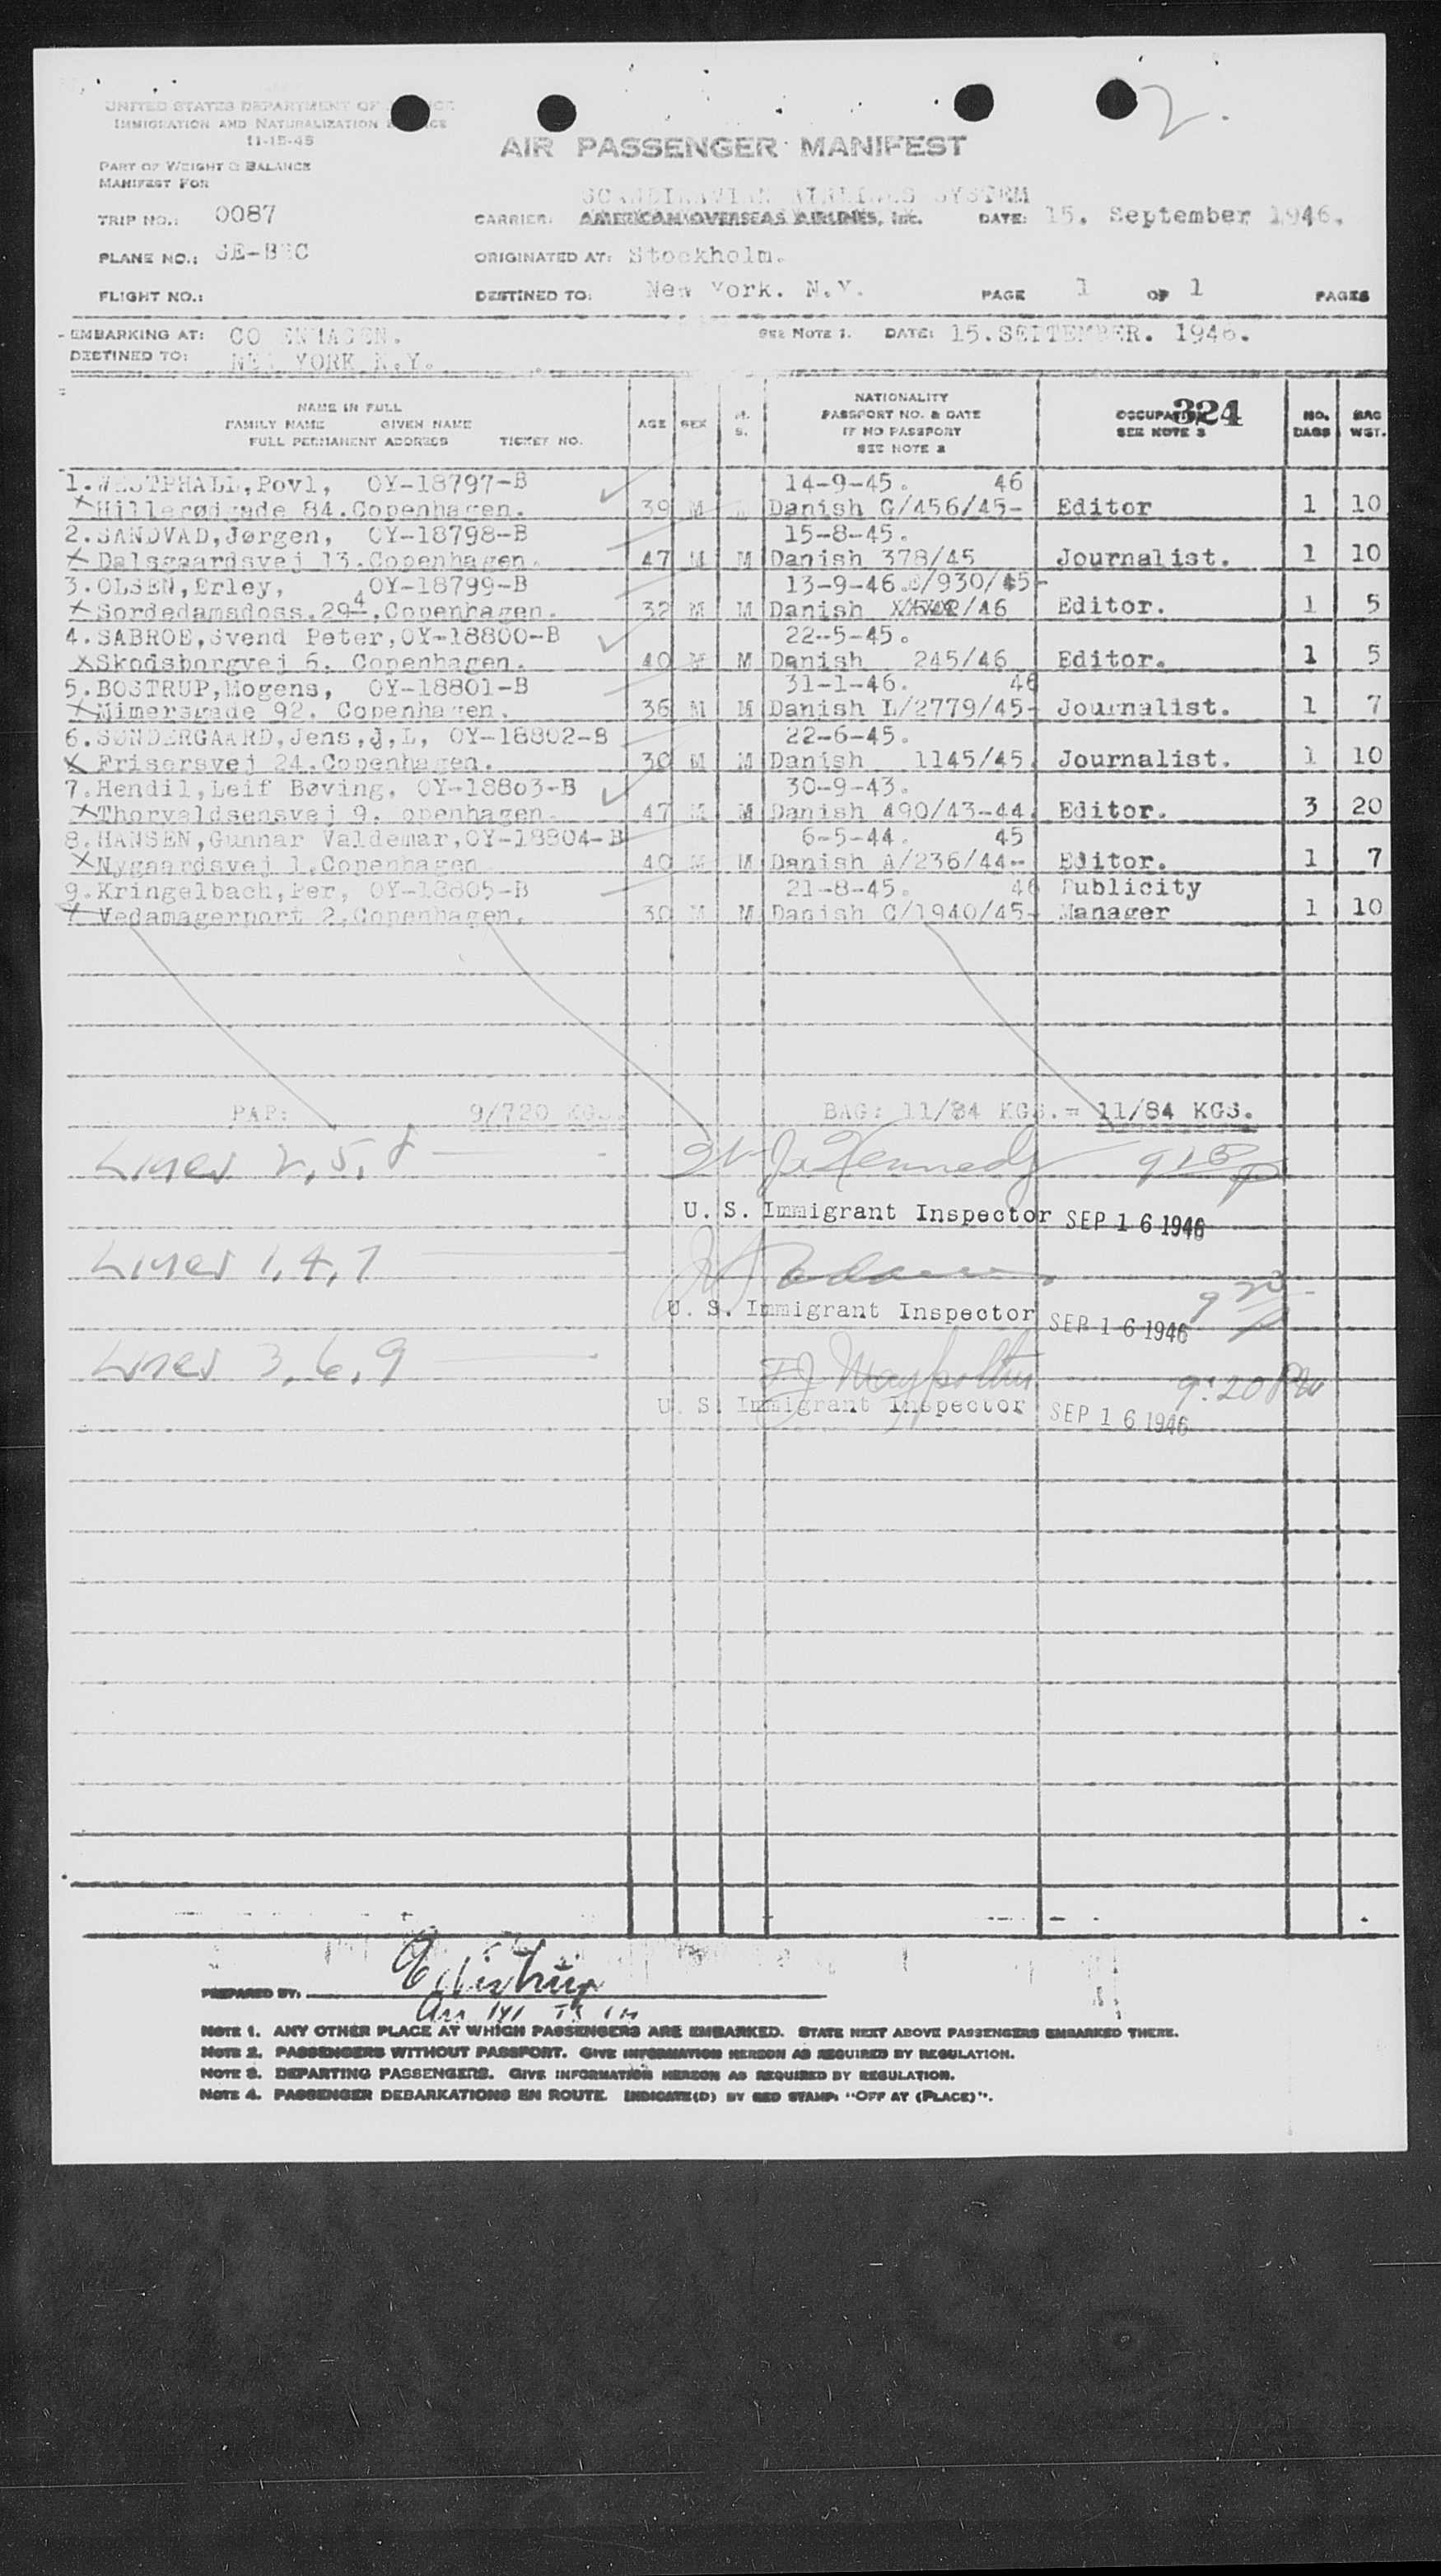 2.
UNITED STATES DEPARTMENT OF
IMMIGRATION AND NATURALIZATION
11-15-45
AIR PASSENGER MANIFEST
PART OF WEIGHT & BALANCE
MANIFEST FOR
SCANDINAVIAN AIRLINES SYSTEM
TRIP NO.: 0087 CARRIER: AMERICAN OVERSEAS AIRLINES, INC. DATE: 15. September 1946.
PLANE NO.: SE-B C ORIGINATED AT: Stockholm.
FLIGHT NO.: DESTINED TO: New York. N.Y. PAGE 1 OF 1 PAGES
EMBARKING AT: CO ENHAGEN. SEE NOTE 1. DATE: 15.SEPTEMBER. 1946.
DESTINED TO: NEW YORK N.Y.
NAME IN FULL
FAMILY NAME GIVEN NAME
FULL PERMANENT ADDRESS TICKET NO.
AGE SEX
S.
NATIONALITY
PASSPORT NO. & DATE
IF NO PASSPORT
SEE NOTE 2
324
SEE NOTE 3
NO.
BAGS
BAG
WGT.
1.WESTPHALL,Povl, OY-18797-B 14-9-45. 46
Hillerødgade 84.Copenhagen. 39 M Danish G/456/45- Editor 1 10
2.SANDVAD,Jørgen, OY-18798-B 15-8-45.
Dalsgaardsvej 13.Copenhagen. 47 M M Danish 378/45 Journalist. 1 10
3.OLSEN,Erley, OY-18799-B 13-9-46. /930/45-
Sordedamsdoss.29 4.Copenhagen. 32 M M Danish /46 Editor. 1 5
4.SABROE,Svend Peter,OY-18800-B 22-5-45.
Skodsborgvej 6. Copenhagen. 40 M M Danish 245/46 Editor. 1 5
5.BOSTRUP,Mogens, OY-18801-B 31-1-46. 46
Mimersgade 92. Copenhagen. 36 M M Danish L/2779/45- Journalist. 1 7
6.SØNDERGAARD,Jens,J,L, OY-18802-B 22-6-45.
Frisersvej 24.Copenhagen. 30 M M Danish 1145/45. Journalist. 1 10
7.Hendil,Leif Bøving. OY-18803-B 30-9-43.
Thorvaldsensvej 9. openhagen. 47 M M Danish 490/43-44. Editor. 3 20
8.HANSEN,Gunnar Valdemar,OY-18804-B 6-5-44. 45
Nygaardsvej 1.Copenhagen 40 M M Danish A/236/44- Editor. 1 7
9.Kringelbach,Per, OY-18805-B 21-8-45. 46 Publicity
Vedamagerport 2.Copenhagen. 30 M M Danish C/1940/45- Manager 1 10
PAP: 9/720 KGS. BAG: 11/84 KGS.= 11/84 KGS.
Lines 2, 5, 8 Kennedy 915 p
U. S. Immigrant Inspector SEP 16 1946
Lines 1, 4, 7
U. S. Immigrant Inspector SEP 16 1946 9 20 p
Lines 3, 6, 9 9:20 PM
U. S. Immigrant Inspector SEP 16 1946
PREPARED BY:
NOTE 1. ANY OTHER PLACE AT WHICH PASSENGERS ARE EMBARKED. STATE NEXT ABOVE PASSENGERS EMBARKED THERE.
NOTE 2. PASSENGERS WITHOUT PASSPORT. GIVE INFORMATION HEREON AS REQUIRED BY REGULATION.
NOTE 3. DEPARTING PASSENGERS. GIVE INFORMATION HEREON AS REQUIRED BY REGULATION.
NOTE 4. PASSENGER DEBARKATIONS EN ROUTE. INDICATE(D) BY RED STAMP: "OFF AT (PLACE)".